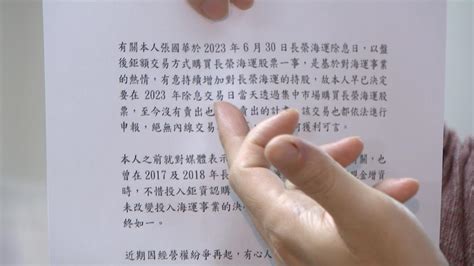 有關本人張國華於 2023 年 6 月 30 日長榮海運除息日，以盤
後鉅額交易方式購買長榮海運股票一事，是基於對海運事業
的熱情，有意持續增加對長榮海運的持股，故本人早已決定
要在 2023 年除息交易日當天透過集中市場購買長榮海運股
票，至今沒有賣出也 賣出的計 該交易也都依法進行
申報，絕無內線交易 何獲利可言。
本人之前就對媒體表示 關，也
曾在 2017 及 2018 年長 金增資
時，不惜投入鉅資認購
未改變投入海運事業的決
終如一。
近期因經營權紛爭再起，有心人